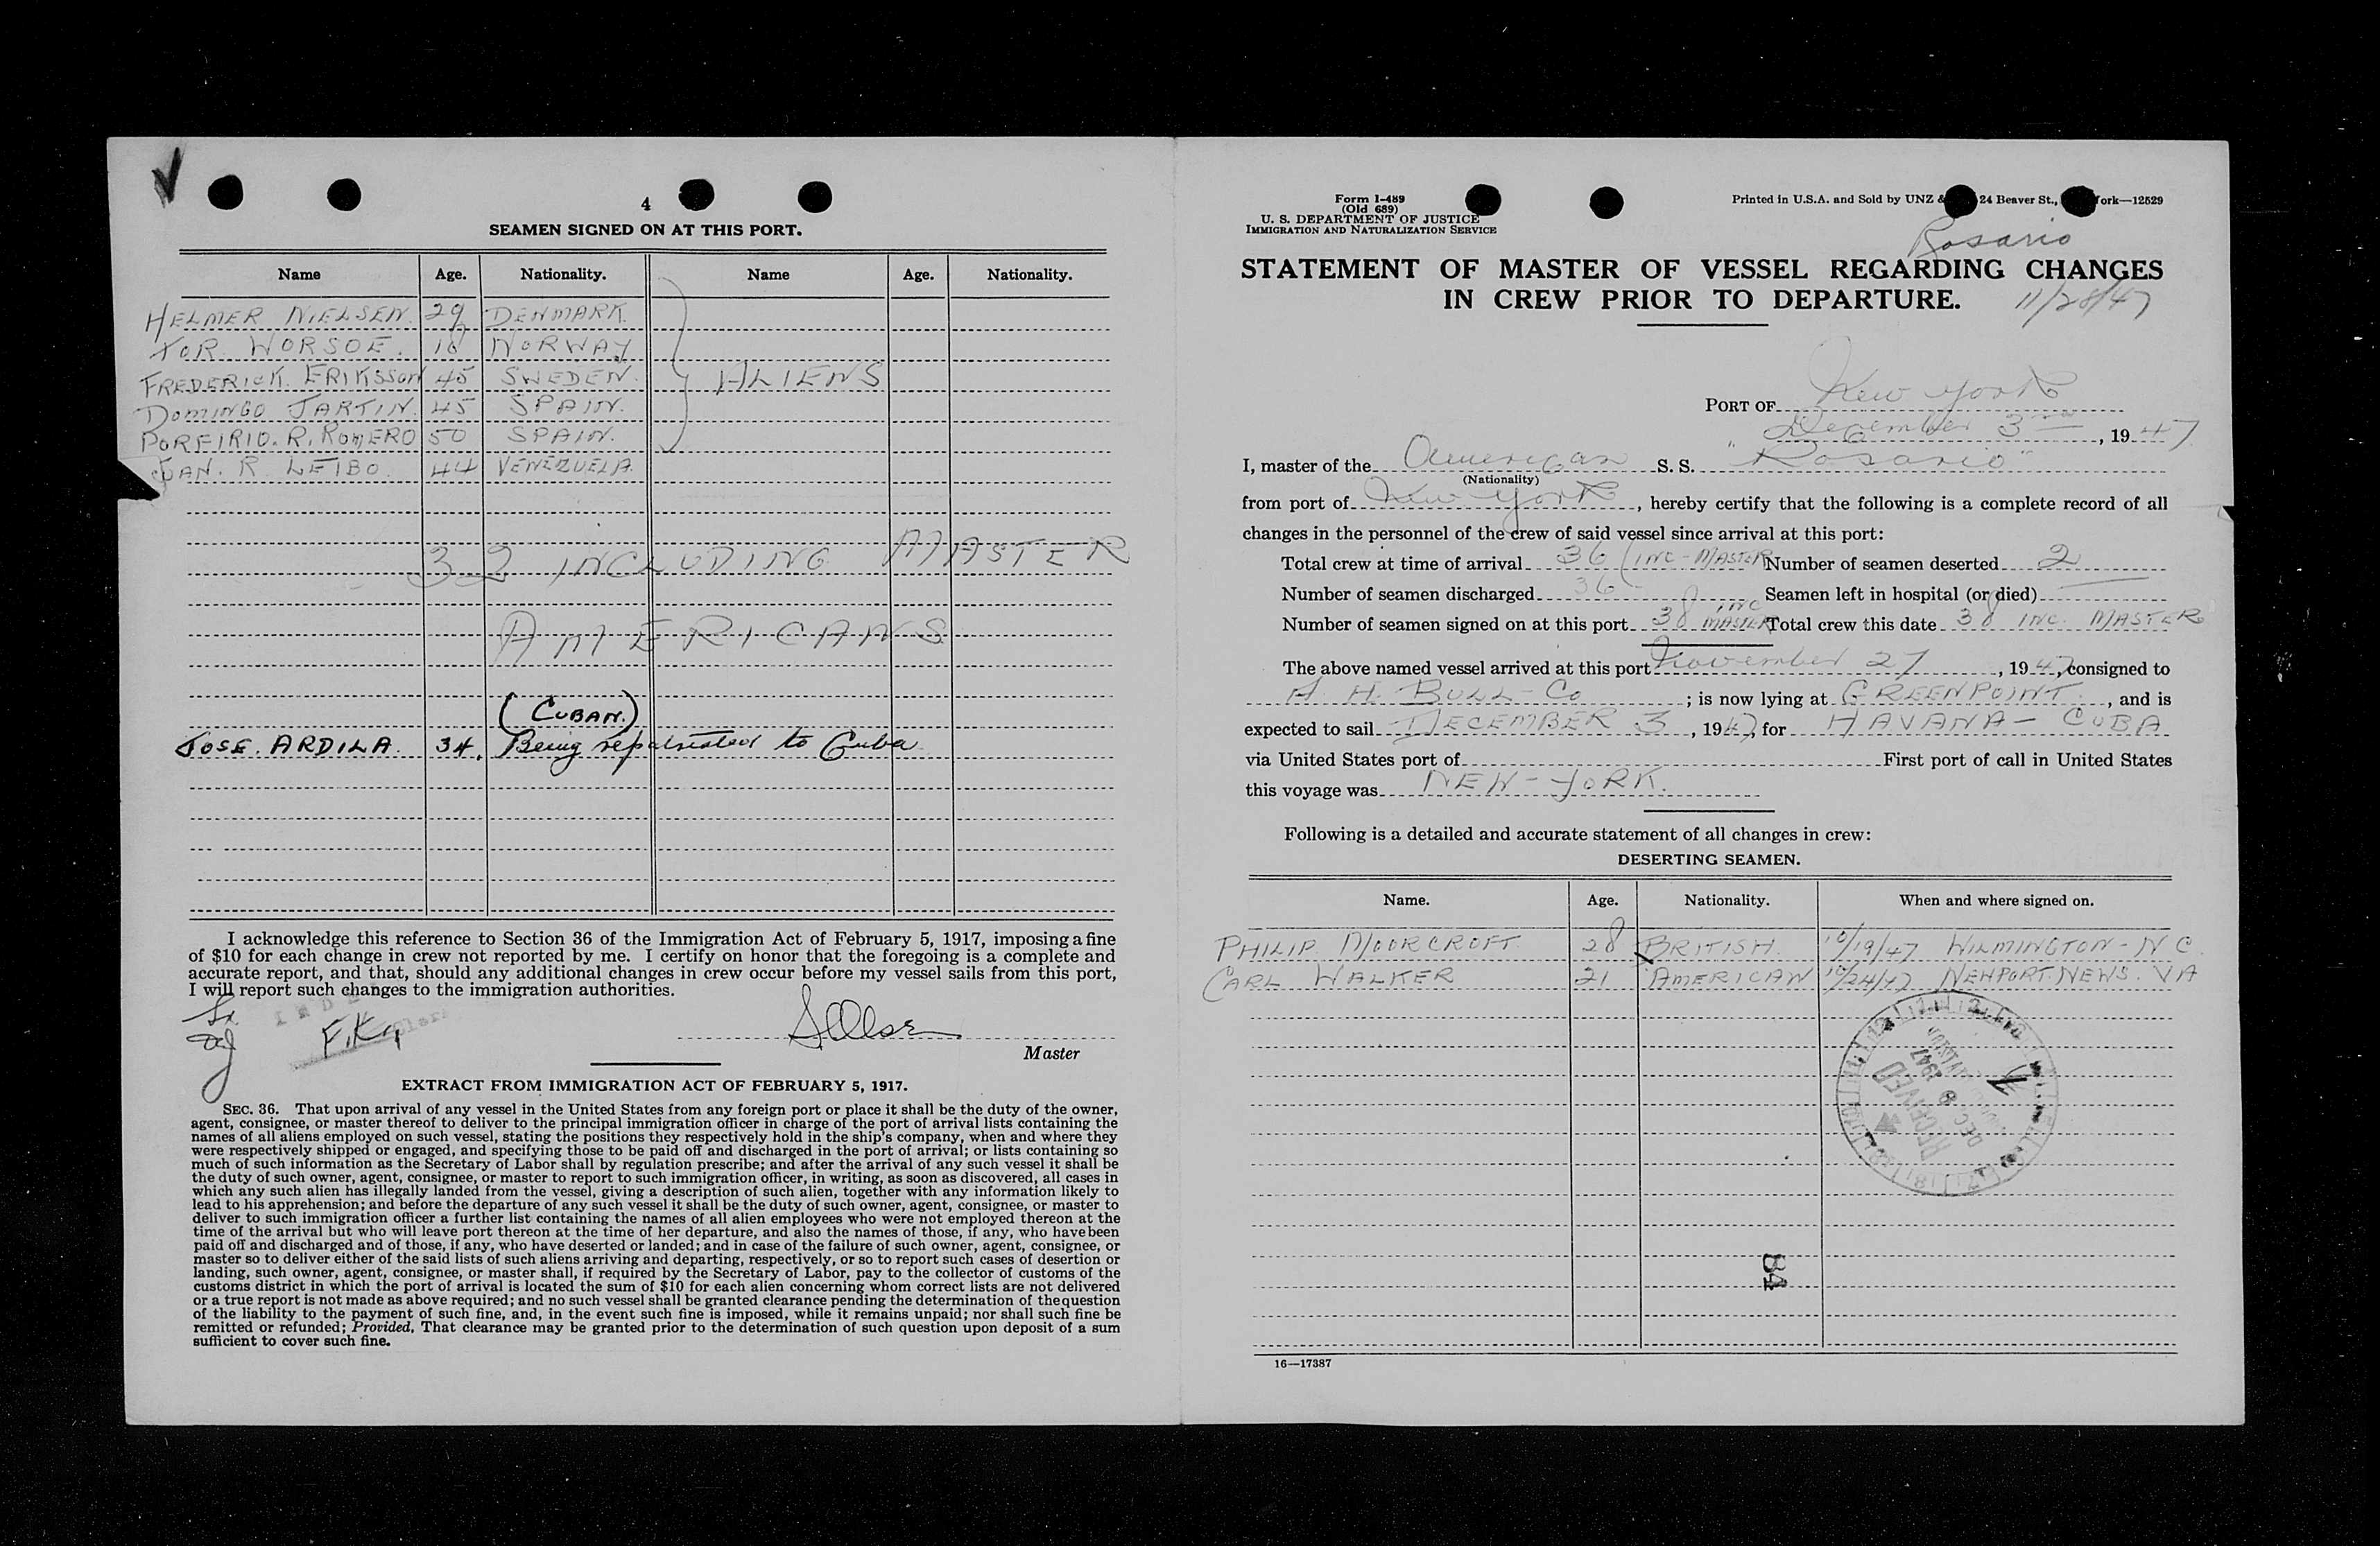 4
SEAMEN SIGNED ON AT THIS PORT.
Name Age. Nationality. Name Age. Nationality.
HELMER NIELSEN. 29 DENMARK.
TOR. WORSOE. 18 NORWAY
FREDERICK. ERIKSSON 45 SWEDEN. ALIENS
DOMINGO JARTIN. 45 SPAIN.
PORFIRIO. R. ROMERO 50 SPAIN.
JUAN. R. LEIBO. 44 VENEZUELA.
32 INCLUDING MASTER
AMERICANS
(CUBAN.)
JOSE. ARDILA. 34. Being repatriated to Cuba
I acknowledge this reference to Section 36 of the Immigration Act of February 5, 1917, imposing a fine
of $10 for each change in crew not reported by me. I certify on honor that the foregoing is a complete and
accurate report, and that, should any additional changes in crew occur before my vessel sails from this port,
I will report such changes to the immigration authorities.
F.K.
Master
EXTRACT FROM IMMIGRATION ACT OF FEBRUARY 5, 1917.
SEC. 36. That upon arrival of any vessel in the United States from any foreign port or place it shall be the duty of the owner,
agent, consignee, or master thereof to deliver to the principal immigration officer in charge of the port of arrival lists containing the
names of all aliens employed on such vessel, stating the positions they respectively hold in the ship's company, when and where they
were respectively shipped or engaged, and specifying those to be paid off and discharged in the port of arrival; or lists containing so
much of such information as the Secretary of Labor shall by regulation prescribe; and after the arrival of any such vessel it shall be
the duty of such owner, agent, consignee, or master to report to such immigration officer, in writing, as soon as discovered, all cases in
which any such alien has illegally landed from the vessel, giving a description of such alien, together with any information likely to
lead to his apprehension; and before the departure of any such vessel it shall be the duty of such owner, agent, consignee, or master to
deliver to such immigration officer a further list containing the names of all alien employees who were not employed thereon at the
time of the arrival but who will leave port thereon at the time of her departure, and also the names of those, if any, who have been
paid off and discharged and of those, if any, who have deserted or landed; and in case of the failure of such owner, agent, consignee, or
master so to deliver either of the said lists of such aliens arriving and departing, respectively, or so to report such cases of desertion or
landing, such owner, agent, consignee, or master shall, if required by the Secretary of Labor, pay to the collector of customs of the
customs district in which the port of arrival is located the sum of $10 for each alien concerning whom correct lists are not delivered
or a true report is not made as above required; and no such vessel shall be granted clearance pending the determination of the question
of the liability to the payment of such fine, and, in the event such fine is imposed, while it remains unpaid; nor shall such fine be
remitted or refunded; Provided, That clearance may be granted prior to the determination of such question upon deposit of a sum
sufficient to cover such fine.
Form I-489
(Old 689)
U. S. DEPARTMENT OF JUSTICE
IMMIGRATION AND NATURALIZATION SERVICE
Printed in U.S.A. and Sold by UNZ & 24 Beaver St., ork—12529
Rosario
STATEMENT OF MASTER OF VESSEL REGARDING CHANGES
IN CREW PRIOR TO DEPARTURE.
11/28/47
PORT OF New York
December 3rd, 1947
I, master of the American S. S. "Rosario"
(Nationality)
from port of New York, hereby certify that the following is a complete record of all
changes in the personnel of the crew of said vessel since arrival at this port:
Total crew at time of arrival 36 (INC-MASTER Number of seamen deserted 2
Number of seamen discharged 36 Seamen left in hospital (or died) —
Number of seamen signed on at this port 38 INC MASTER Total crew this date 38 INC. MASTER
The above named vessel arrived at this port November 27, 1947, consigned to
A. H. BULL-Co; is now lying at GREENPOINT., and is
expected to sail DECEMBER 3, 1947, for HAVANA - CUBA
via United States port of First port of call in United States
this voyage was NEW-YORK.
Following is a detailed and accurate statement of all changes in crew:
DESERTING SEAMEN.
Name. Age. Nationality. When and where signed on.
PHILIP MOORCROFT 28 BRITISH. 10/19/47 WILMINGTON-NC.
CARL WALKER 21 AMERICAN 10/24/47 NEWPORT NEWS. VA
RECEIVED
DEC 9 1947
B4
16—17387